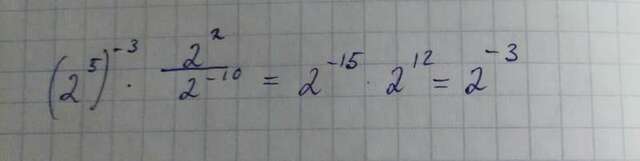 (2⁵)⁻³ · 2²/2⁻¹⁰ = 2⁻¹⁵ · 2¹² = 2⁻³